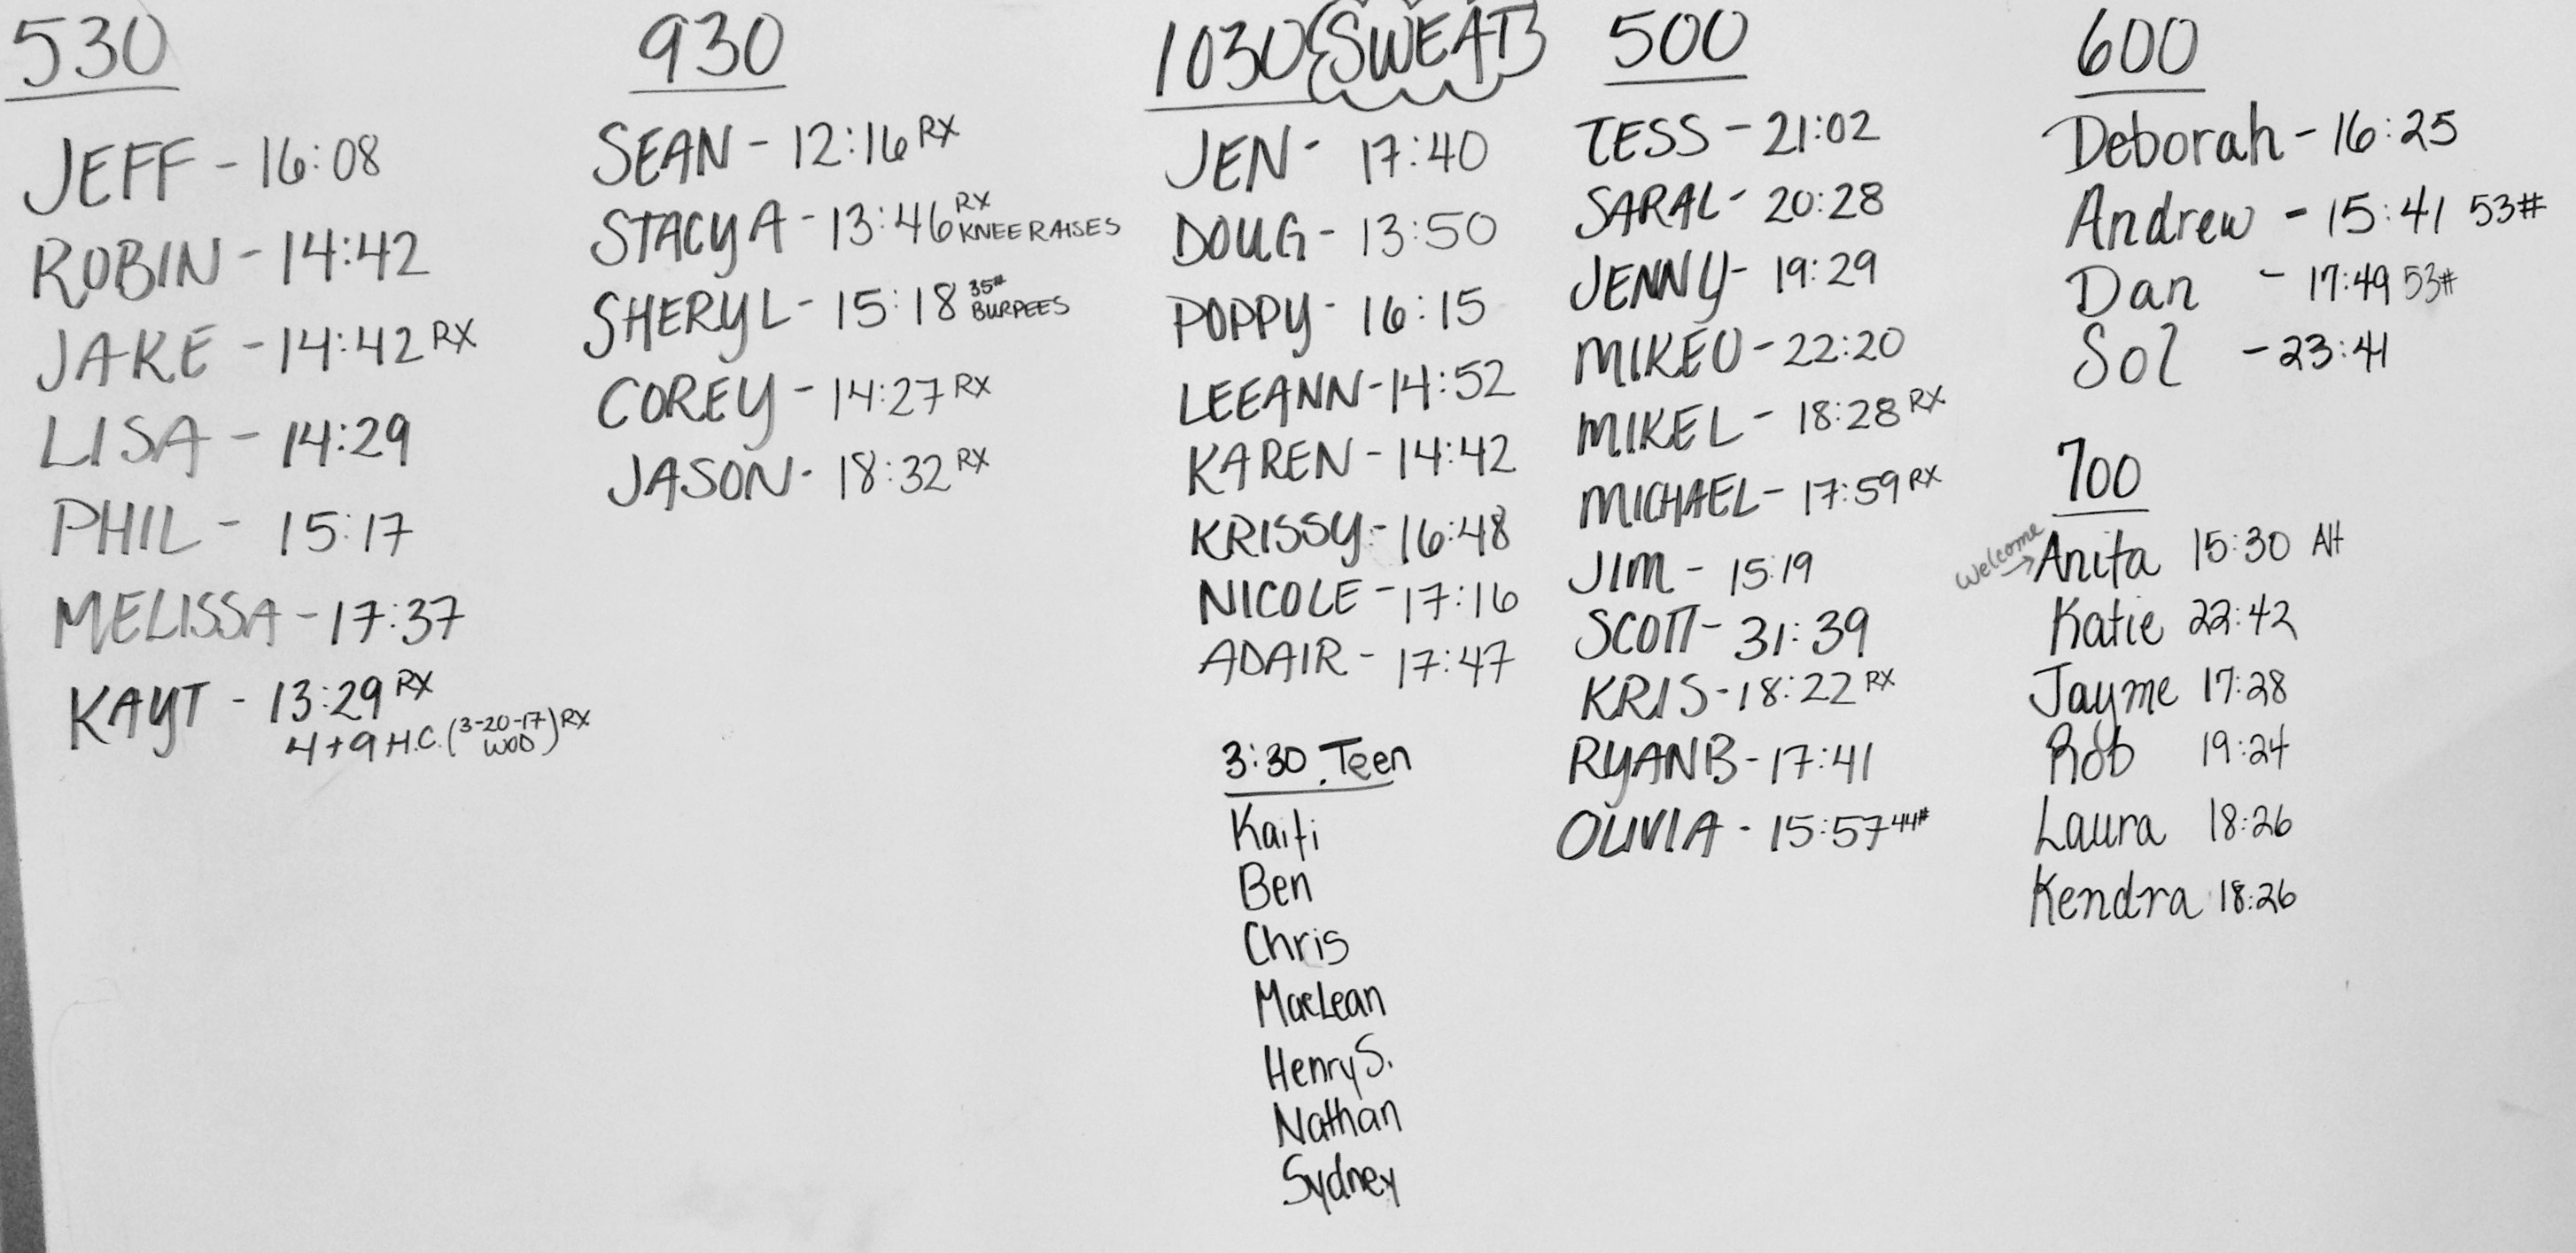 530
JEFF - 16:08
ROBIN - 14:42
JAKE - 14:42 RX
LISA - 14:29
PHIL - 15:17
MELISSA - 17:37
KAYT - 13:29 RX
4+9 H.C. (3-20-17 WOD) RX
930
SEAN - 12:16 RX
STACY A - 13:46 RX KNEE RAISES
SHERYL - 15:18 35# BURPEES
COREY - 14:27 RX
JASON - 18:32 RX
1030 SWEAT
JEN - 17:40
DOUG - 13:50
POPPY - 16:15
LEEANN - 14:52
KAREN - 14:42
KRISSY - 16:48
NICOLE - 17:16
ADAIR - 17:47
3:30 Teen
Kaiti
Ben
Chris
MacLean
Henry S.
Nathan
Sydney
500
TESS - 21:02
SARAL - 20:28
JENNY - 19:29
MIKEU - 22:20
MIKEL - 18:28 RX
MICHAEL - 17:59 RX
JIM - 15:19
SCOTT - 31:39
KRIS - 18:22 RX
RYANB - 17:41
OLIVIA - 15:57 44#
600
Deborah - 16:25
Andrew - 15:41 53#
Dan - 17:49 53#
Sol - 23:41
700
Welcome → Anita 15:30 Alt
Katie 22:42
Jayme 17:28
Rob 19:24
Laura 18:26
Kendra 18:26